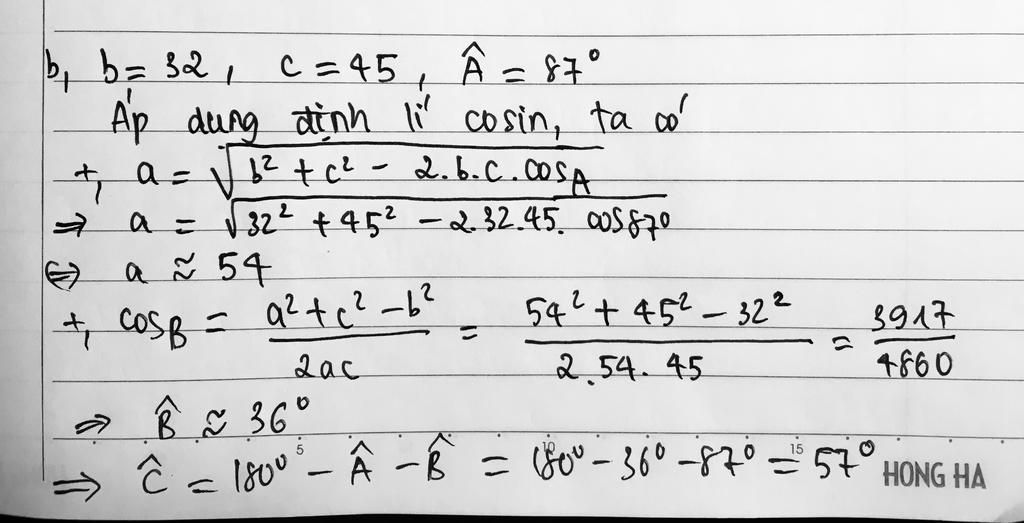 b, b = 32, c = 45, Â = 87°
Áp dụng định lí cosin, ta có
+, a = √(b² + c² - 2.b.c.cosA)
⇒ a = √(32² + 45² - 2.32.45. cos87°)
⇔ a ≈ 54
+, cosB = (a² + c² - b²)/(2ac) = (54² + 45² - 32²)/(2.54.45) = 3917/4860
⇒ B̂ ≈ 36°
⇒ Ĉ = 180° - Â - B̂ = 180° - 36° - 87° = 57°
5 10 15 HONG HA